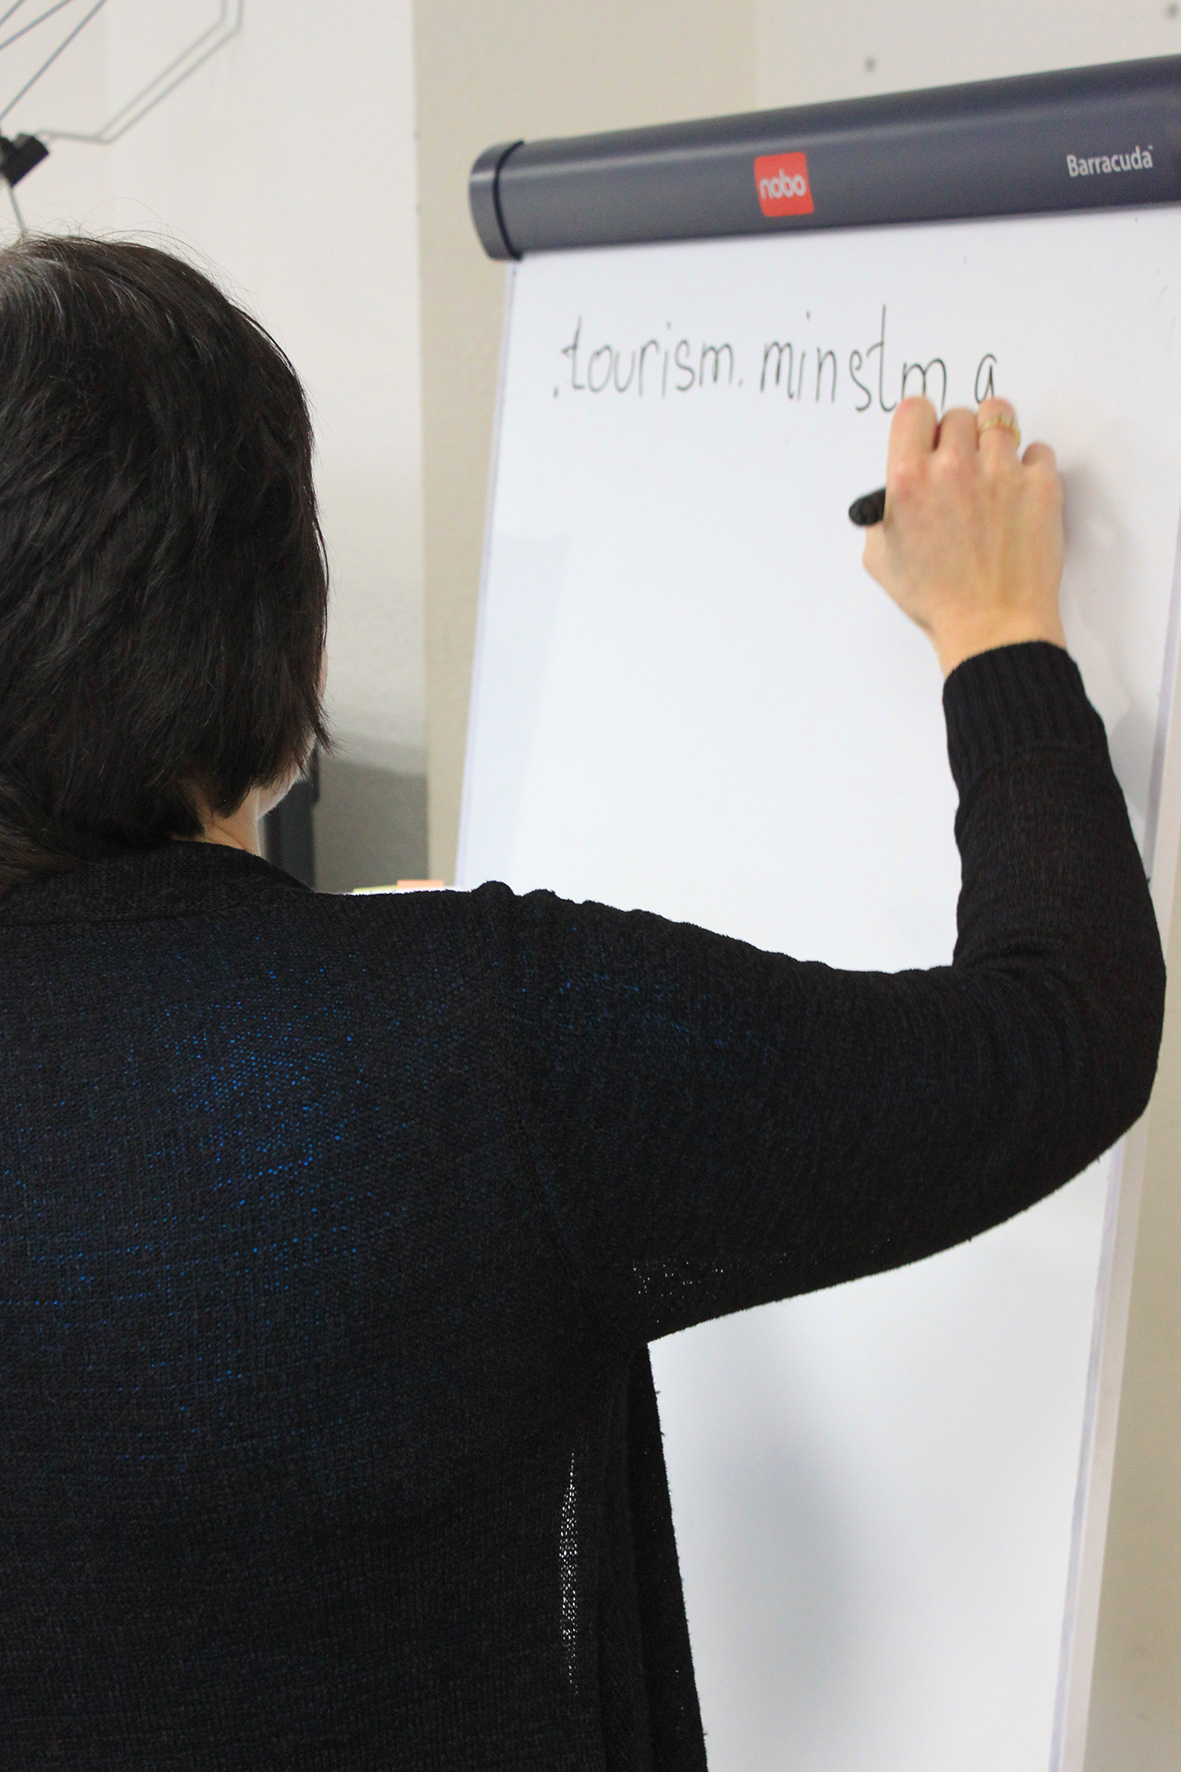 nobo
Barracuda™
.tourism.minstm a